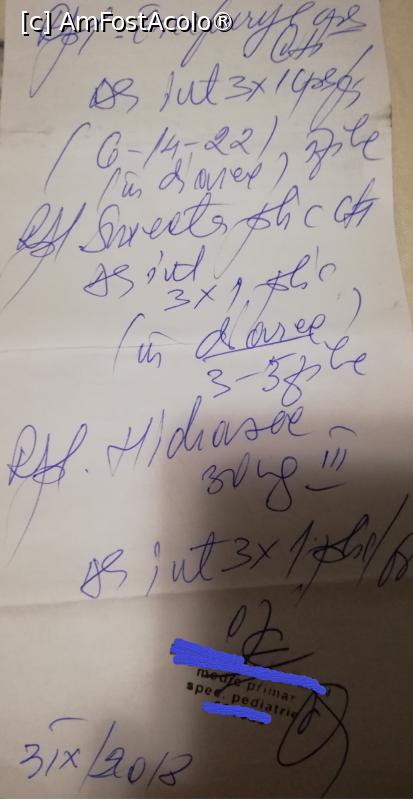 [c] AmFostAcolo®
DS int 3x1 cps/zi
(6-14-22), 3 zile
(în diaree)
Rp/ Smecta plic
DS int
3x1 plic
(în diaree)
3-5 zile
Rp. Hidrasec
30mg III
DS int 3x1 plic/
medic primar
spec. pediatrie
3 IX/2018